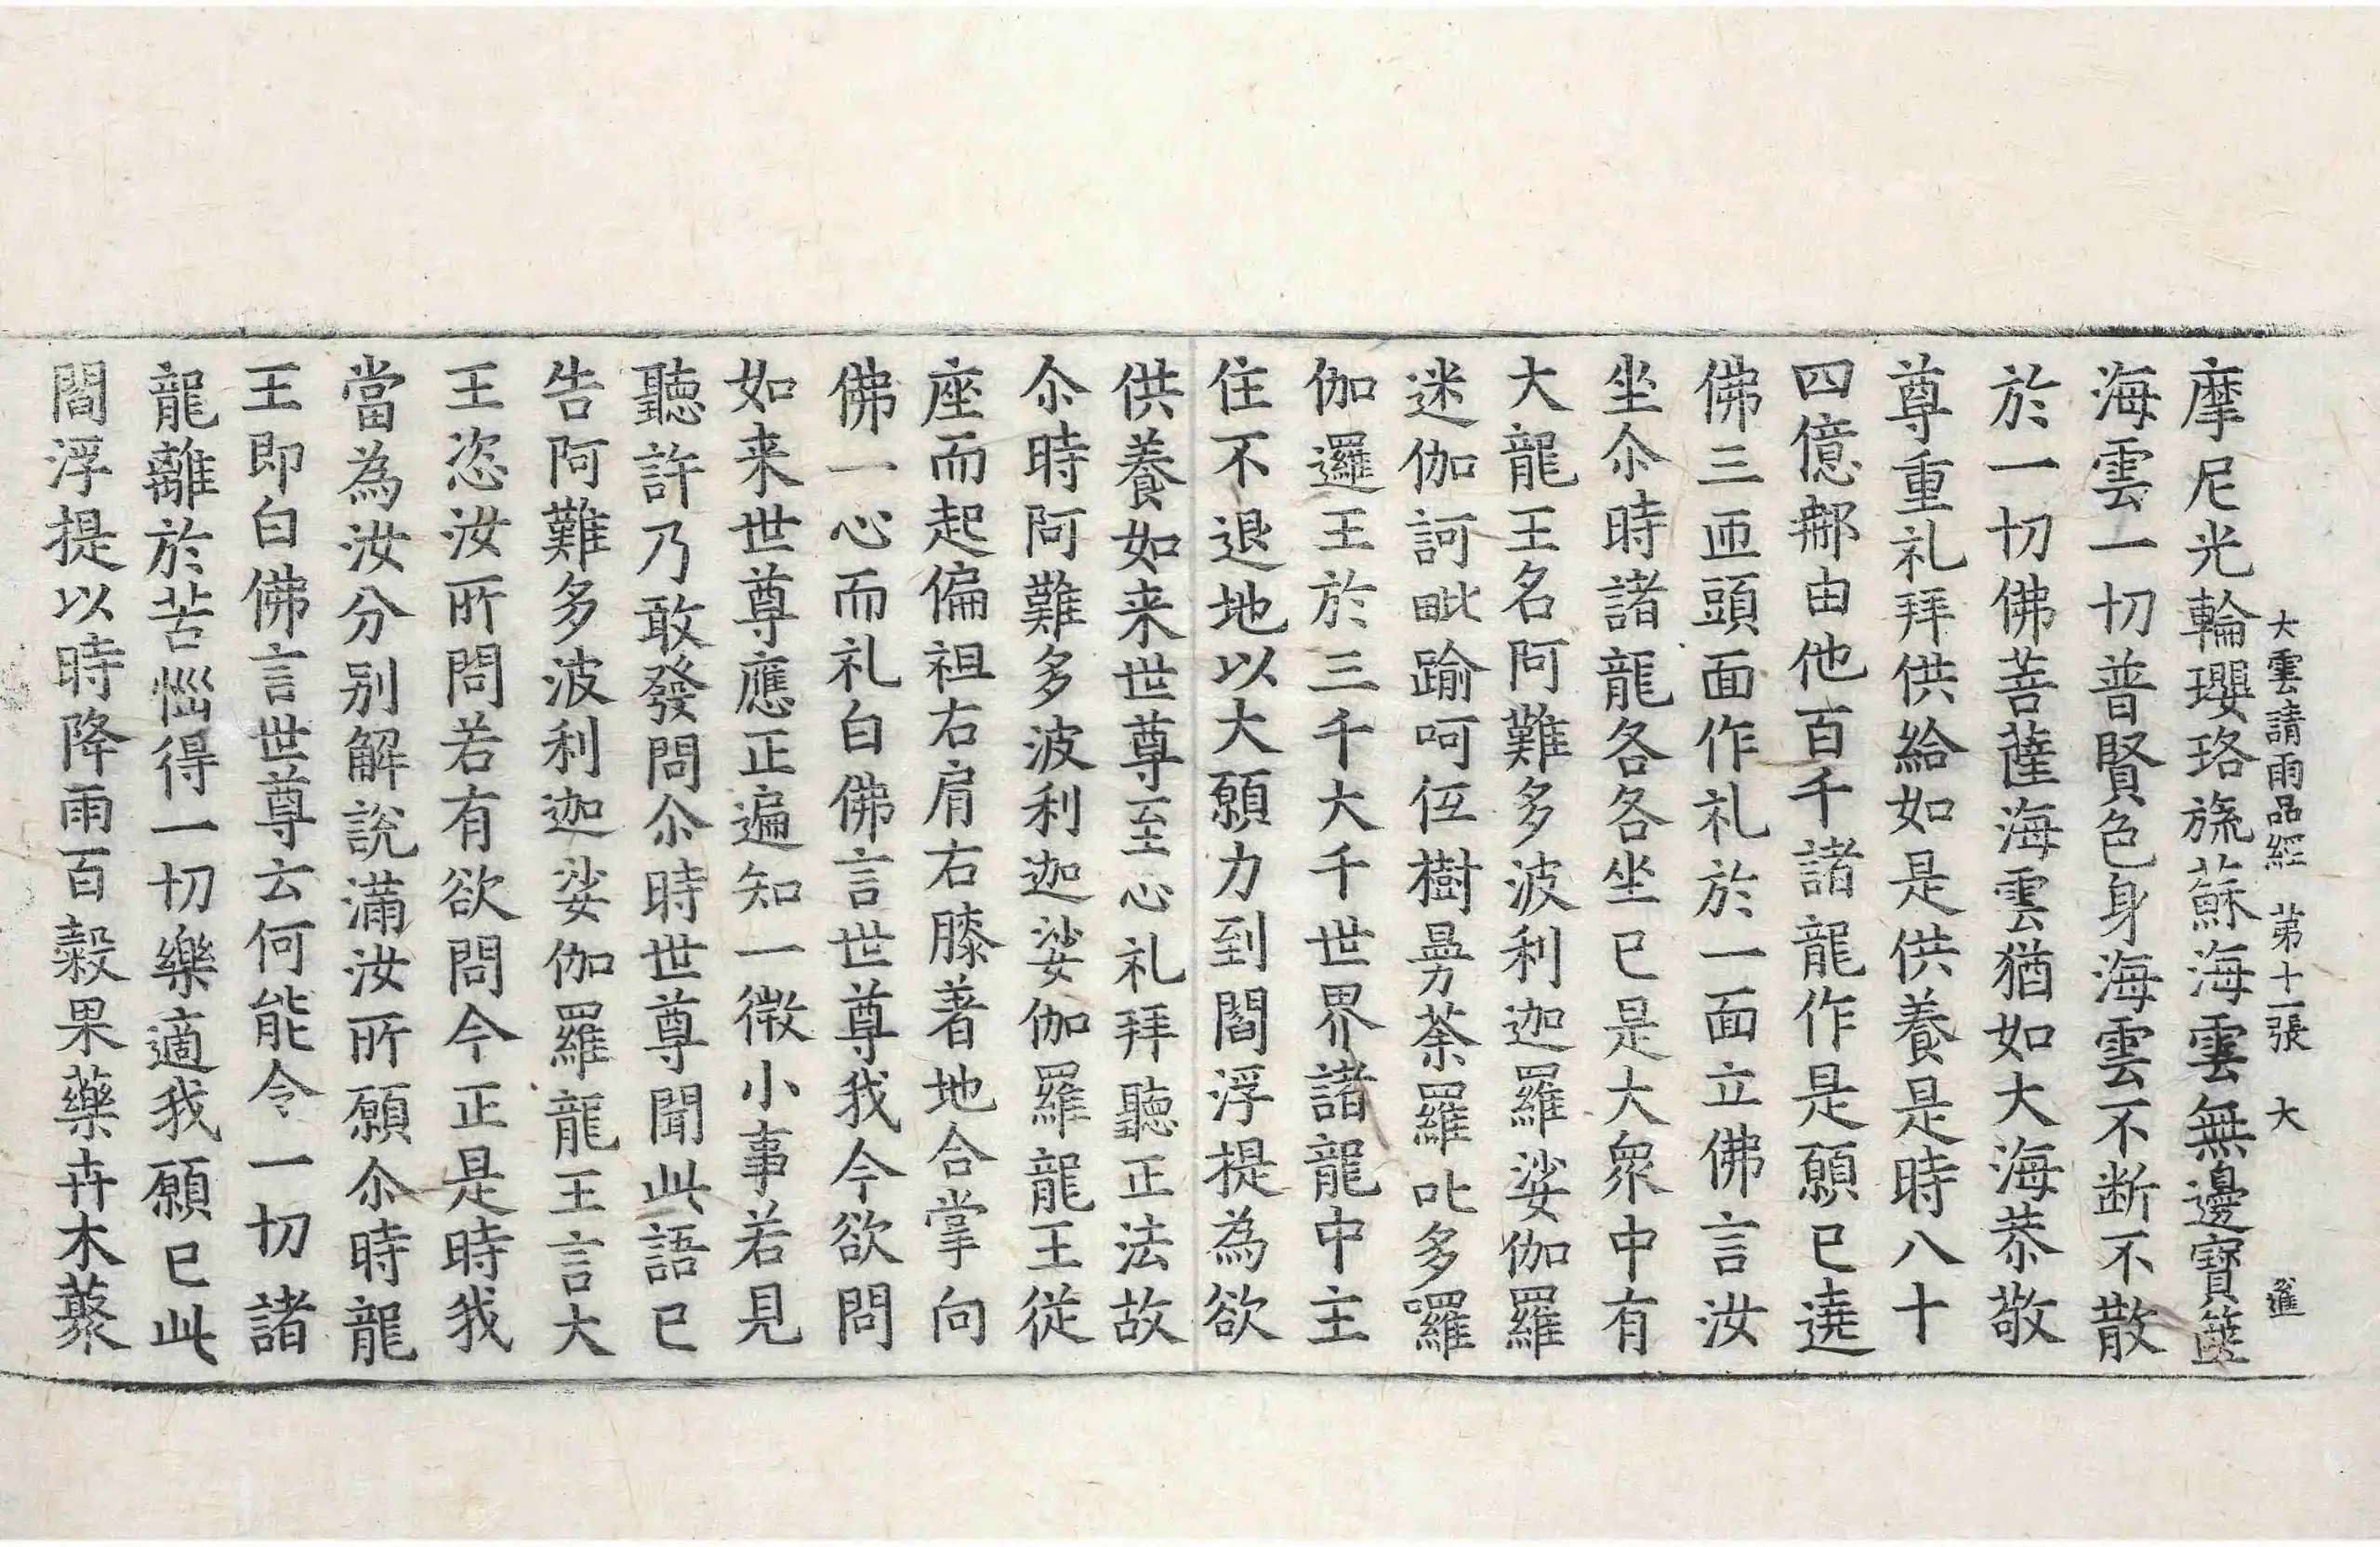 大雲請雨品經 第十一張 大
摩尼光輪瓔珞旒蘇海雲無邊寶篋
海雲一切普賢色身海雲不断不散
於一切佛菩薩海雲猶如大海恭敬
尊重礼拜供給如是供養是時八十
四億那由他百千諸龍作是願已遶
佛三匝頭面作礼於一面立佛言汝
坐尒時諸龍各各坐已是大衆中有
大龍王名阿難多波利迦羅娑伽羅
迷伽訶毗踰呵仾樹㬅荼羅叱多囉
伽邏王於三千大千世界諸龍中主
住不退地以大願力到閻浮提為欲
供養如来世尊至心礼拜聽正法故
尒時阿難多波利迦娑伽羅龍王従
座而起偏袒右肩右膝著地合掌向
佛一心而礼白佛言世尊我今欲問
如来世尊應正遍知一微小事若見
聽許乃敢發問尒時世尊聞此語已
告阿難多波利迦娑伽羅龍王言大
王恣汝所問若有欲問今正是時我
當為汝分别解說滿汝所願尒時龍
王即白佛言世尊云何能令一切諸
龍離於苦惱得一切樂適我願已此
閻浮提以時降雨百穀果藥卉木藂